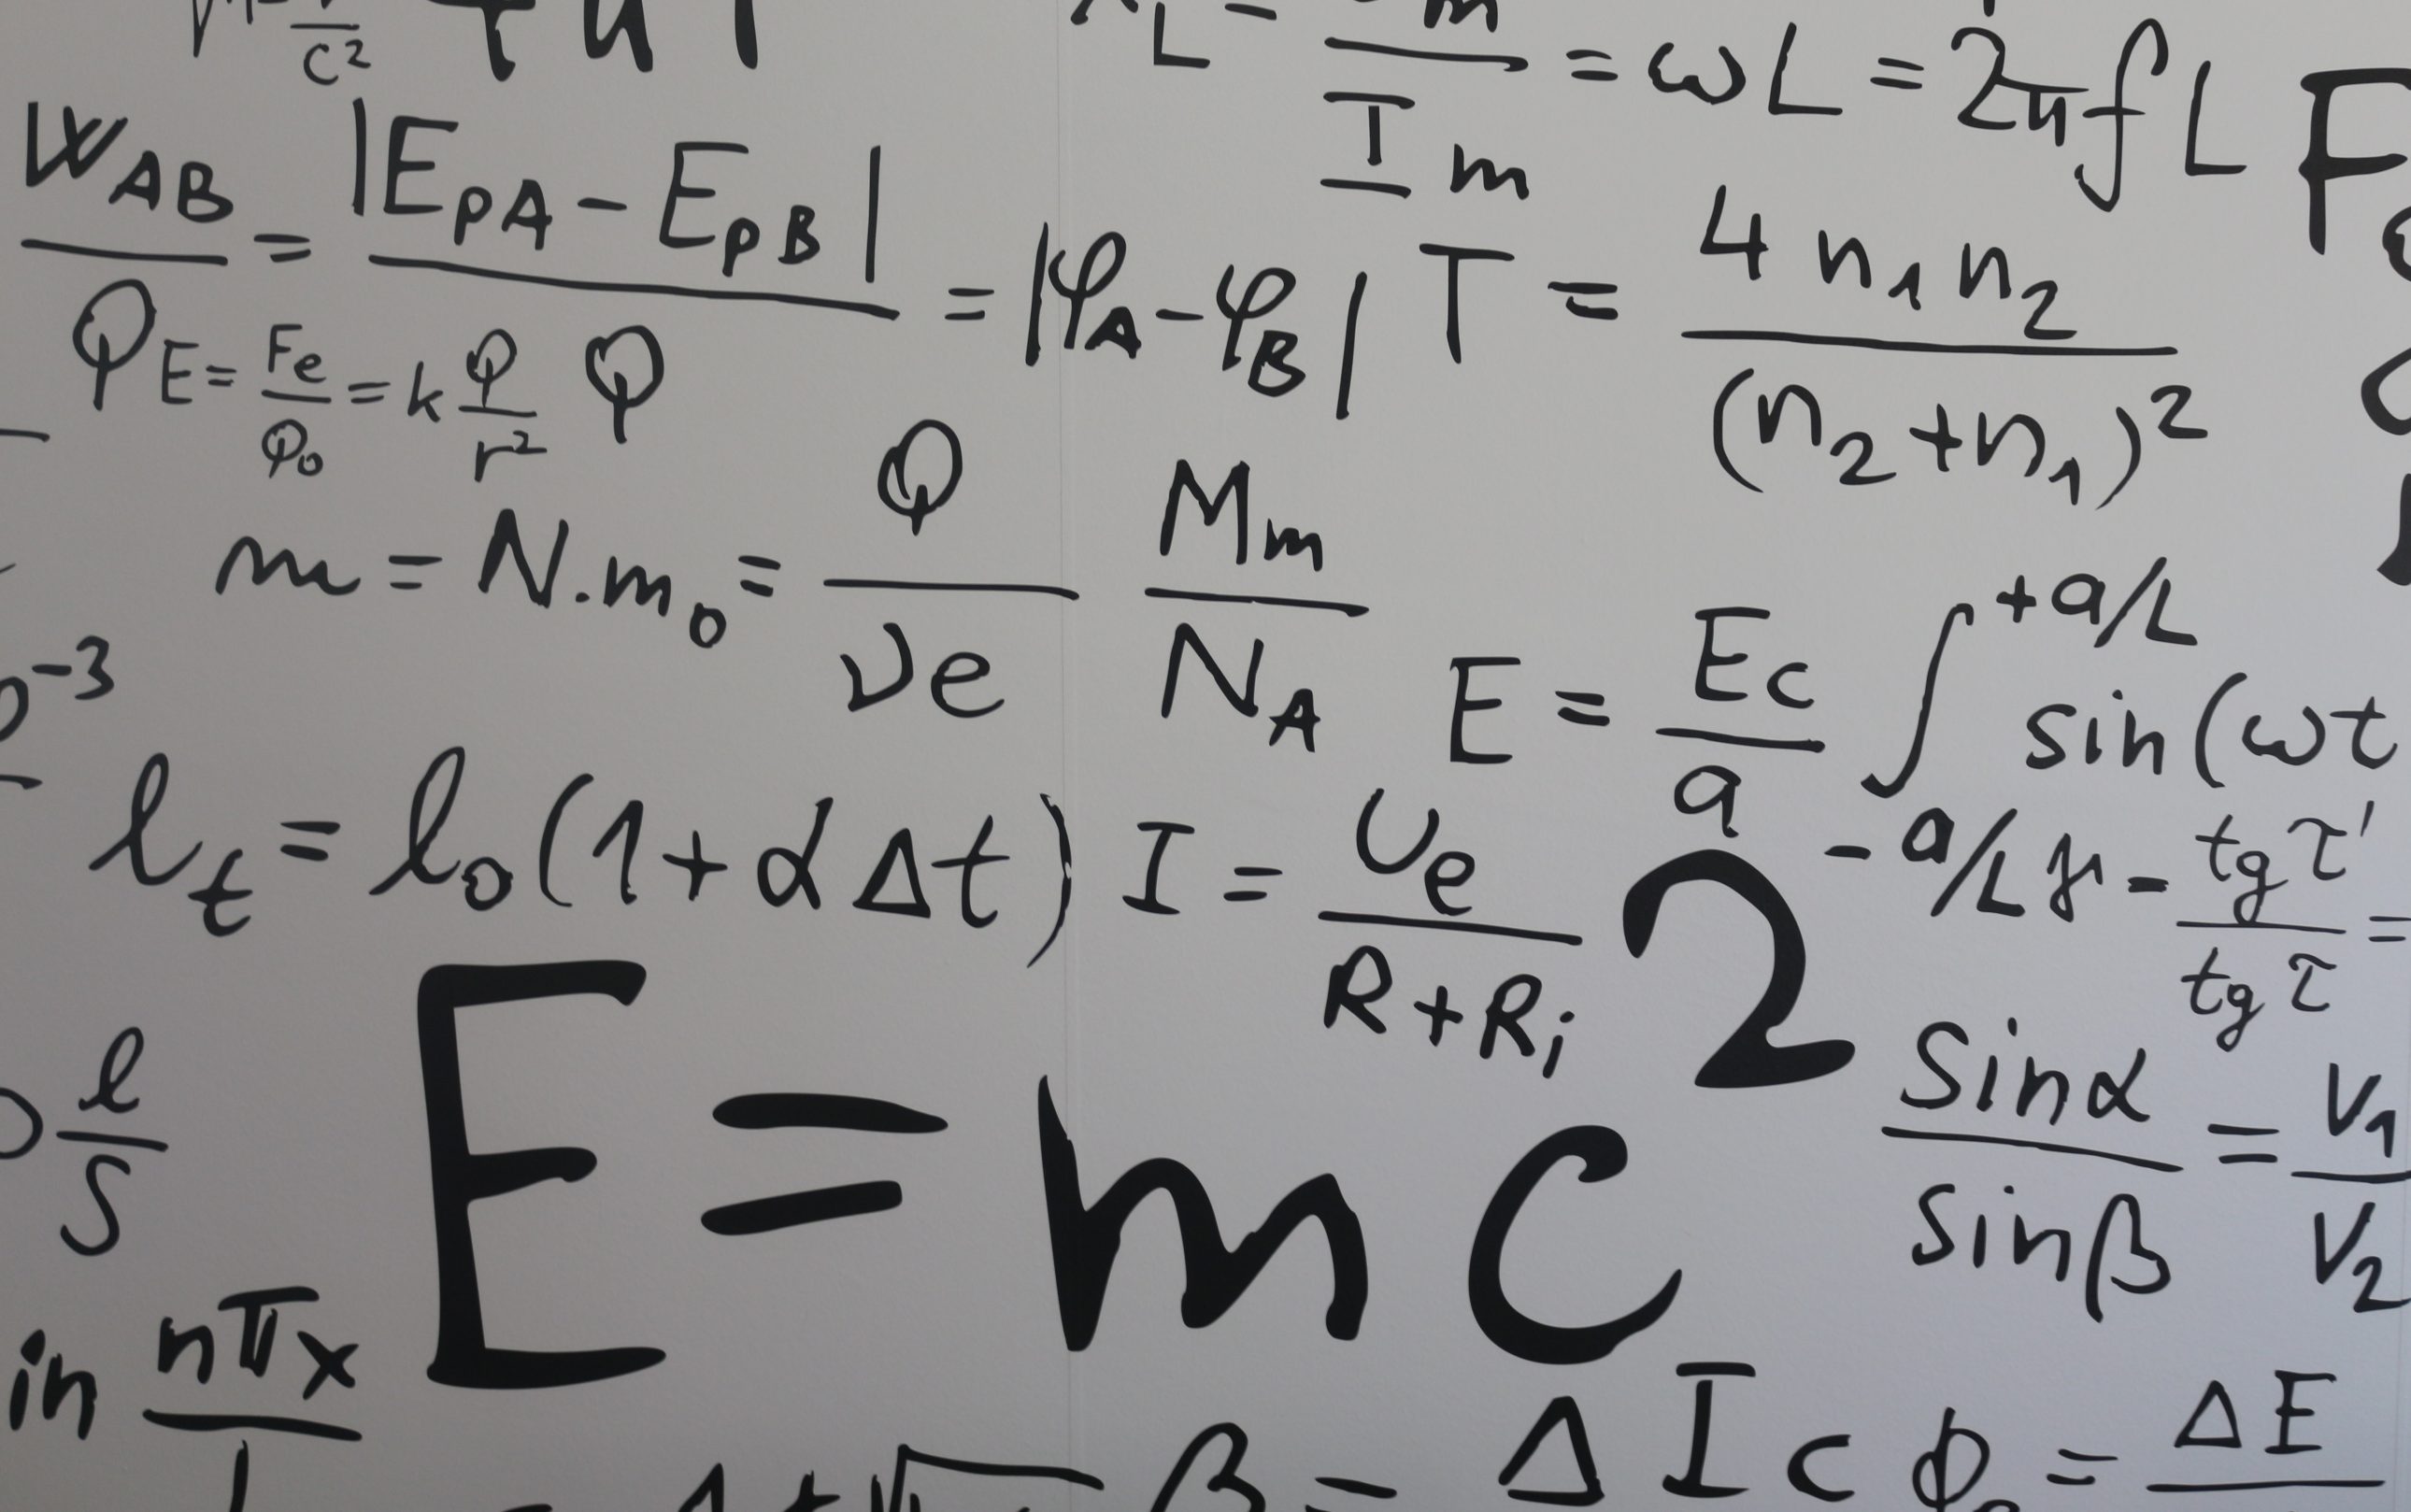 c²
L = m / I m = ωL = 2πfL
W_AB / Q = |E_pA - E_pB| / Q = |φ_A - φ_B|
T = 4 n₁ n₂ / (n₂+n₁)²
E = Fe / Q₀ = k Q / r²
m = N.m₀ = Q / νe Mm / N_A
-3
E = Ec / a ∫ +a/L -a/L sin(ωt
l_t = l₀(1+αΔt)
I = Ue / R+Ri
γ = tgτ' / tgτ =
E = mc²
l / S
Sinα / sinβ = V₁ / V₂
in nπx
β = ΔIc
ϕe = ΔE